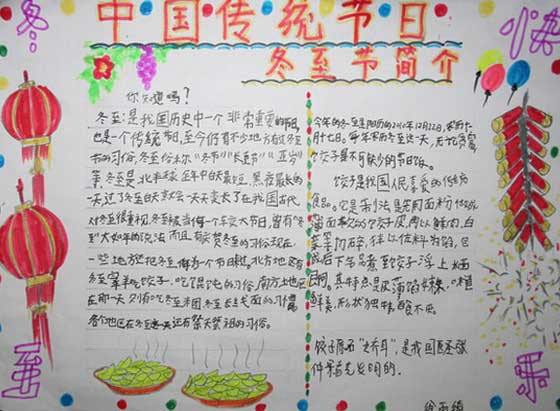 中国传统节日
冬至节简介
冬
至
快
乐
你知道吗?
冬至:是我国历史中一个非常重要的节日,
也是一个传统节日,至今仍有不少地方有过冬至
节的习俗,冬至俗称"冬节""长至节""亚岁"
等,冬至是北半球全年中白天最短,黑夜最长的
一天过了冬至白天就会一天天变长了在我国古代
人对冬至很重视,冬至被当做一个较大节日,曾有"冬
至"大如年的说法而且有庆贺冬至的习俗现在,
一些地方还把冬至做为一个节日来过。北方地区有
冬至宰羊吃饺子,吃馄饨的习俗,南方
在那一天则有吃冬至米团,冬至长线面的习惯
各个地区在冬至这一天还有祭天祭祖的习俗。
今年的冬至是阳历的2010年12月22日,农历十一
月十七日。每年农历冬至这一天,
饺子是不可缺少的节日饭。
饺子是我国人民喜爱的传统
食品。它是制法是先用面粉
面
菜等切碎,拌以佐料为馅,包
后下锅煮至饺子浮上水面
即可。其特点是皮薄馅嫩,味道
鲜美,形状独特,百食不厌。
饺子原名"娇耳",是我国医圣张
仲景首先发明的.